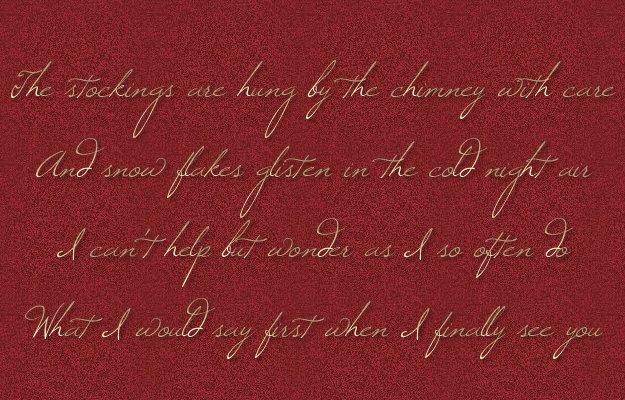 The stockings are hung by the chimney with care
And snow flakes glisten in the cold night air
I can't help but wonder as I so often do
What I would say first when I finally see you